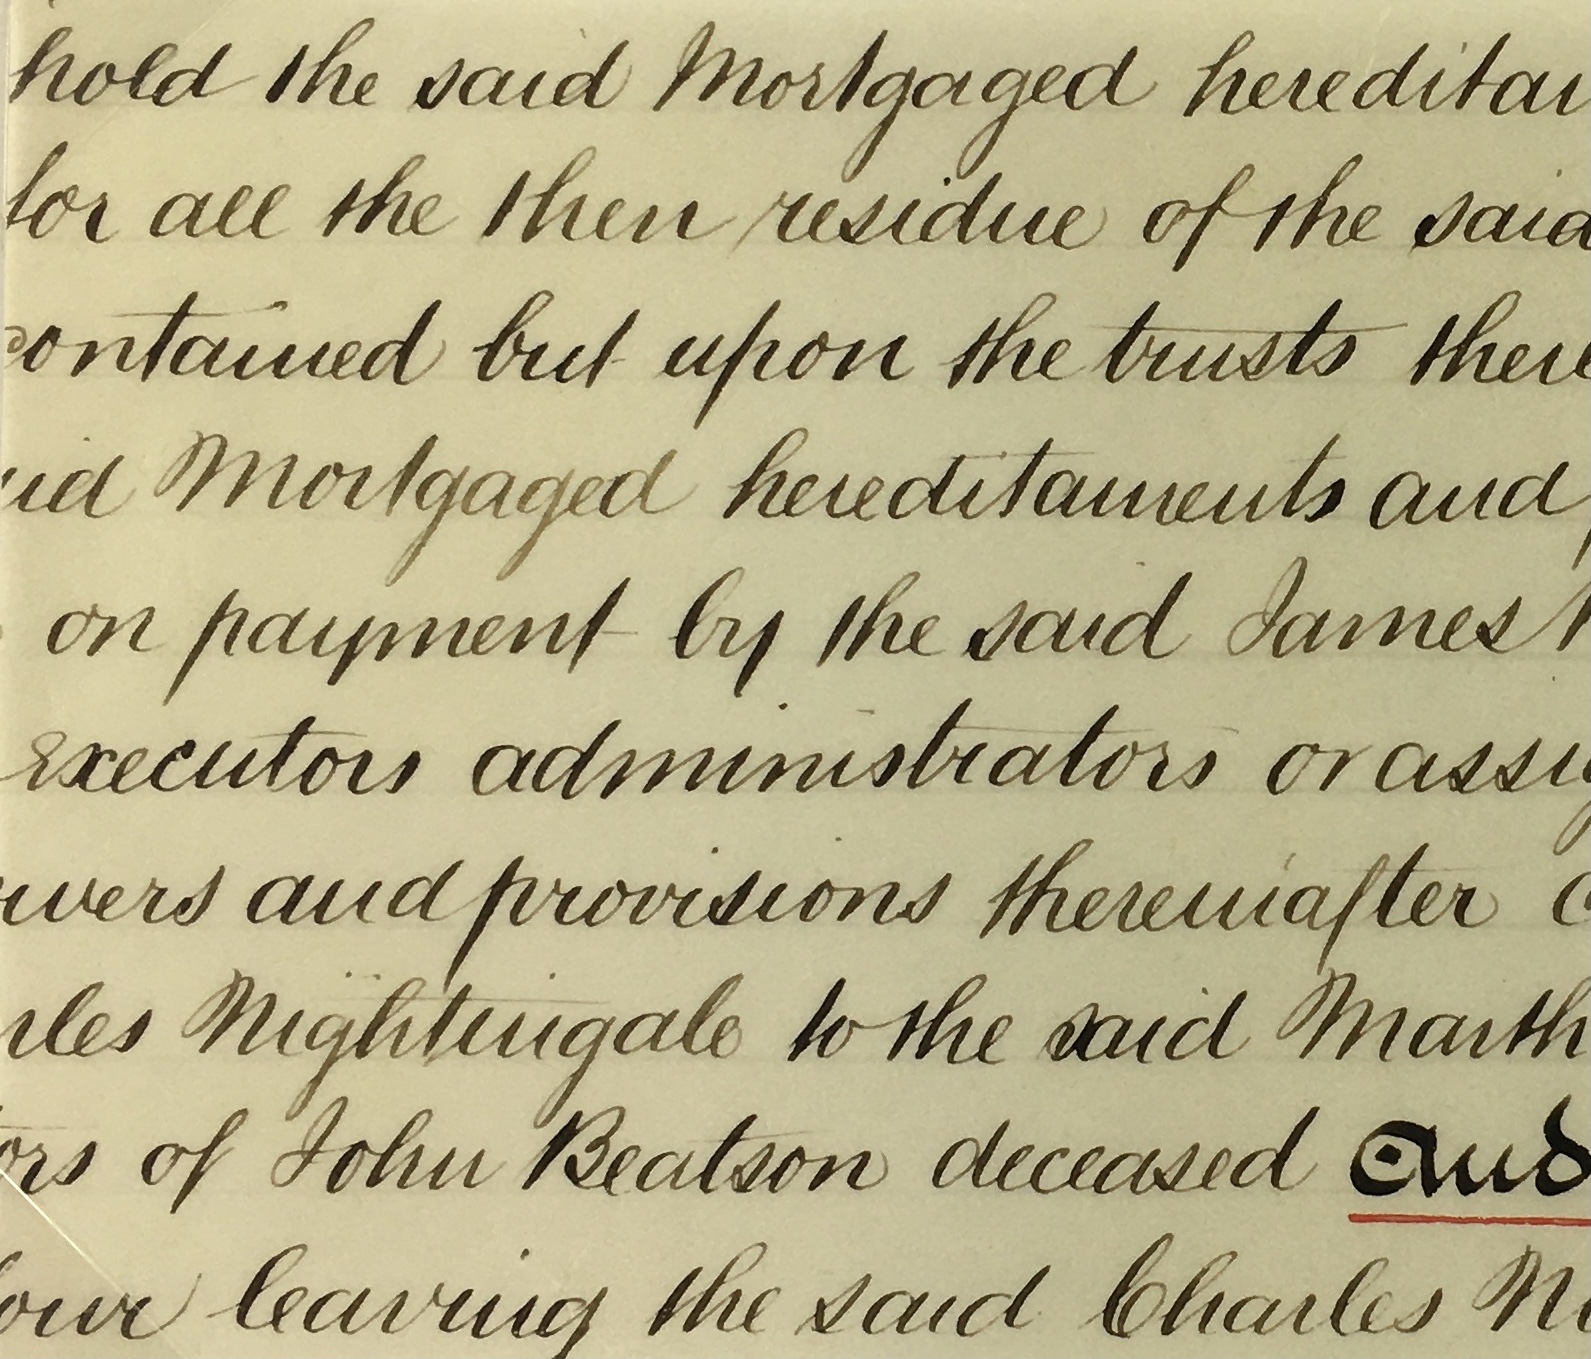 hold the said Mortgaged hereditam
for all the then residue of the said
contained but upon the trusts there
aid Mortgaged hereditaments and
on payment by the said James
Executors administrators or assig
owers and provisions thereinafter c
rles Nightingale to the said Marth
ors of John Beatson deceased And
four leaving the said Charles Ni